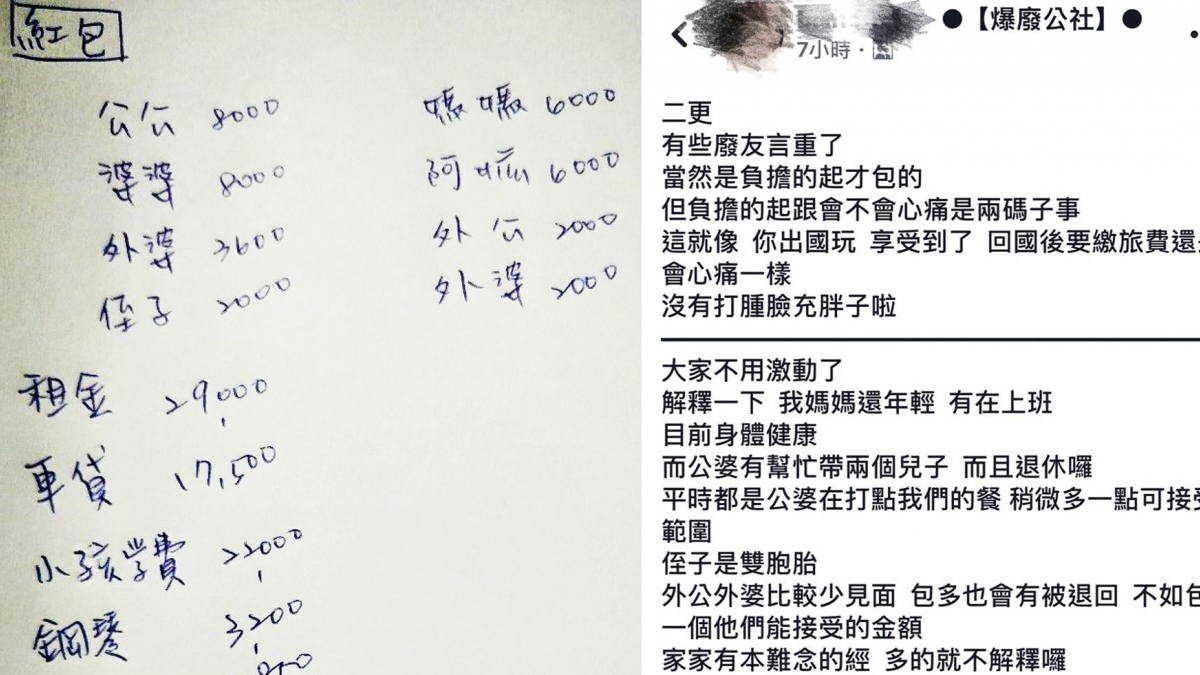 紅包
公公 8000
媽媽 6000
婆婆 8000
阿嬤 6000
外婆 3600
外公 2000
侄子 2000
外婆 2000
租金 29,000
車貸 17,500
小孩学費 22,000
鋼琴 3,200
7小時
●【爆廢公社】●
二更
有些廢友言重了
當然是負擔的起才包的
但負擔的起跟會不會心痛是兩碼子事
這就像 你出國玩 享受到了 回國後要繳旅費還
會心痛一樣
沒有打腫臉充胖子啦
大家不用激動了
解釋一下 我媽媽還年輕 有在上班
目前身體健康
而公婆有幫忙帶兩個兒子 而且退休囉
平時都是公婆在打點我們的餐 稍微多一點可接受
範圍
侄子是雙胞胎
外公外婆比較少見面 包多也會有被退回 不如包
一個他們能接受的金額
家家有本難念的經 多的就不解釋囉